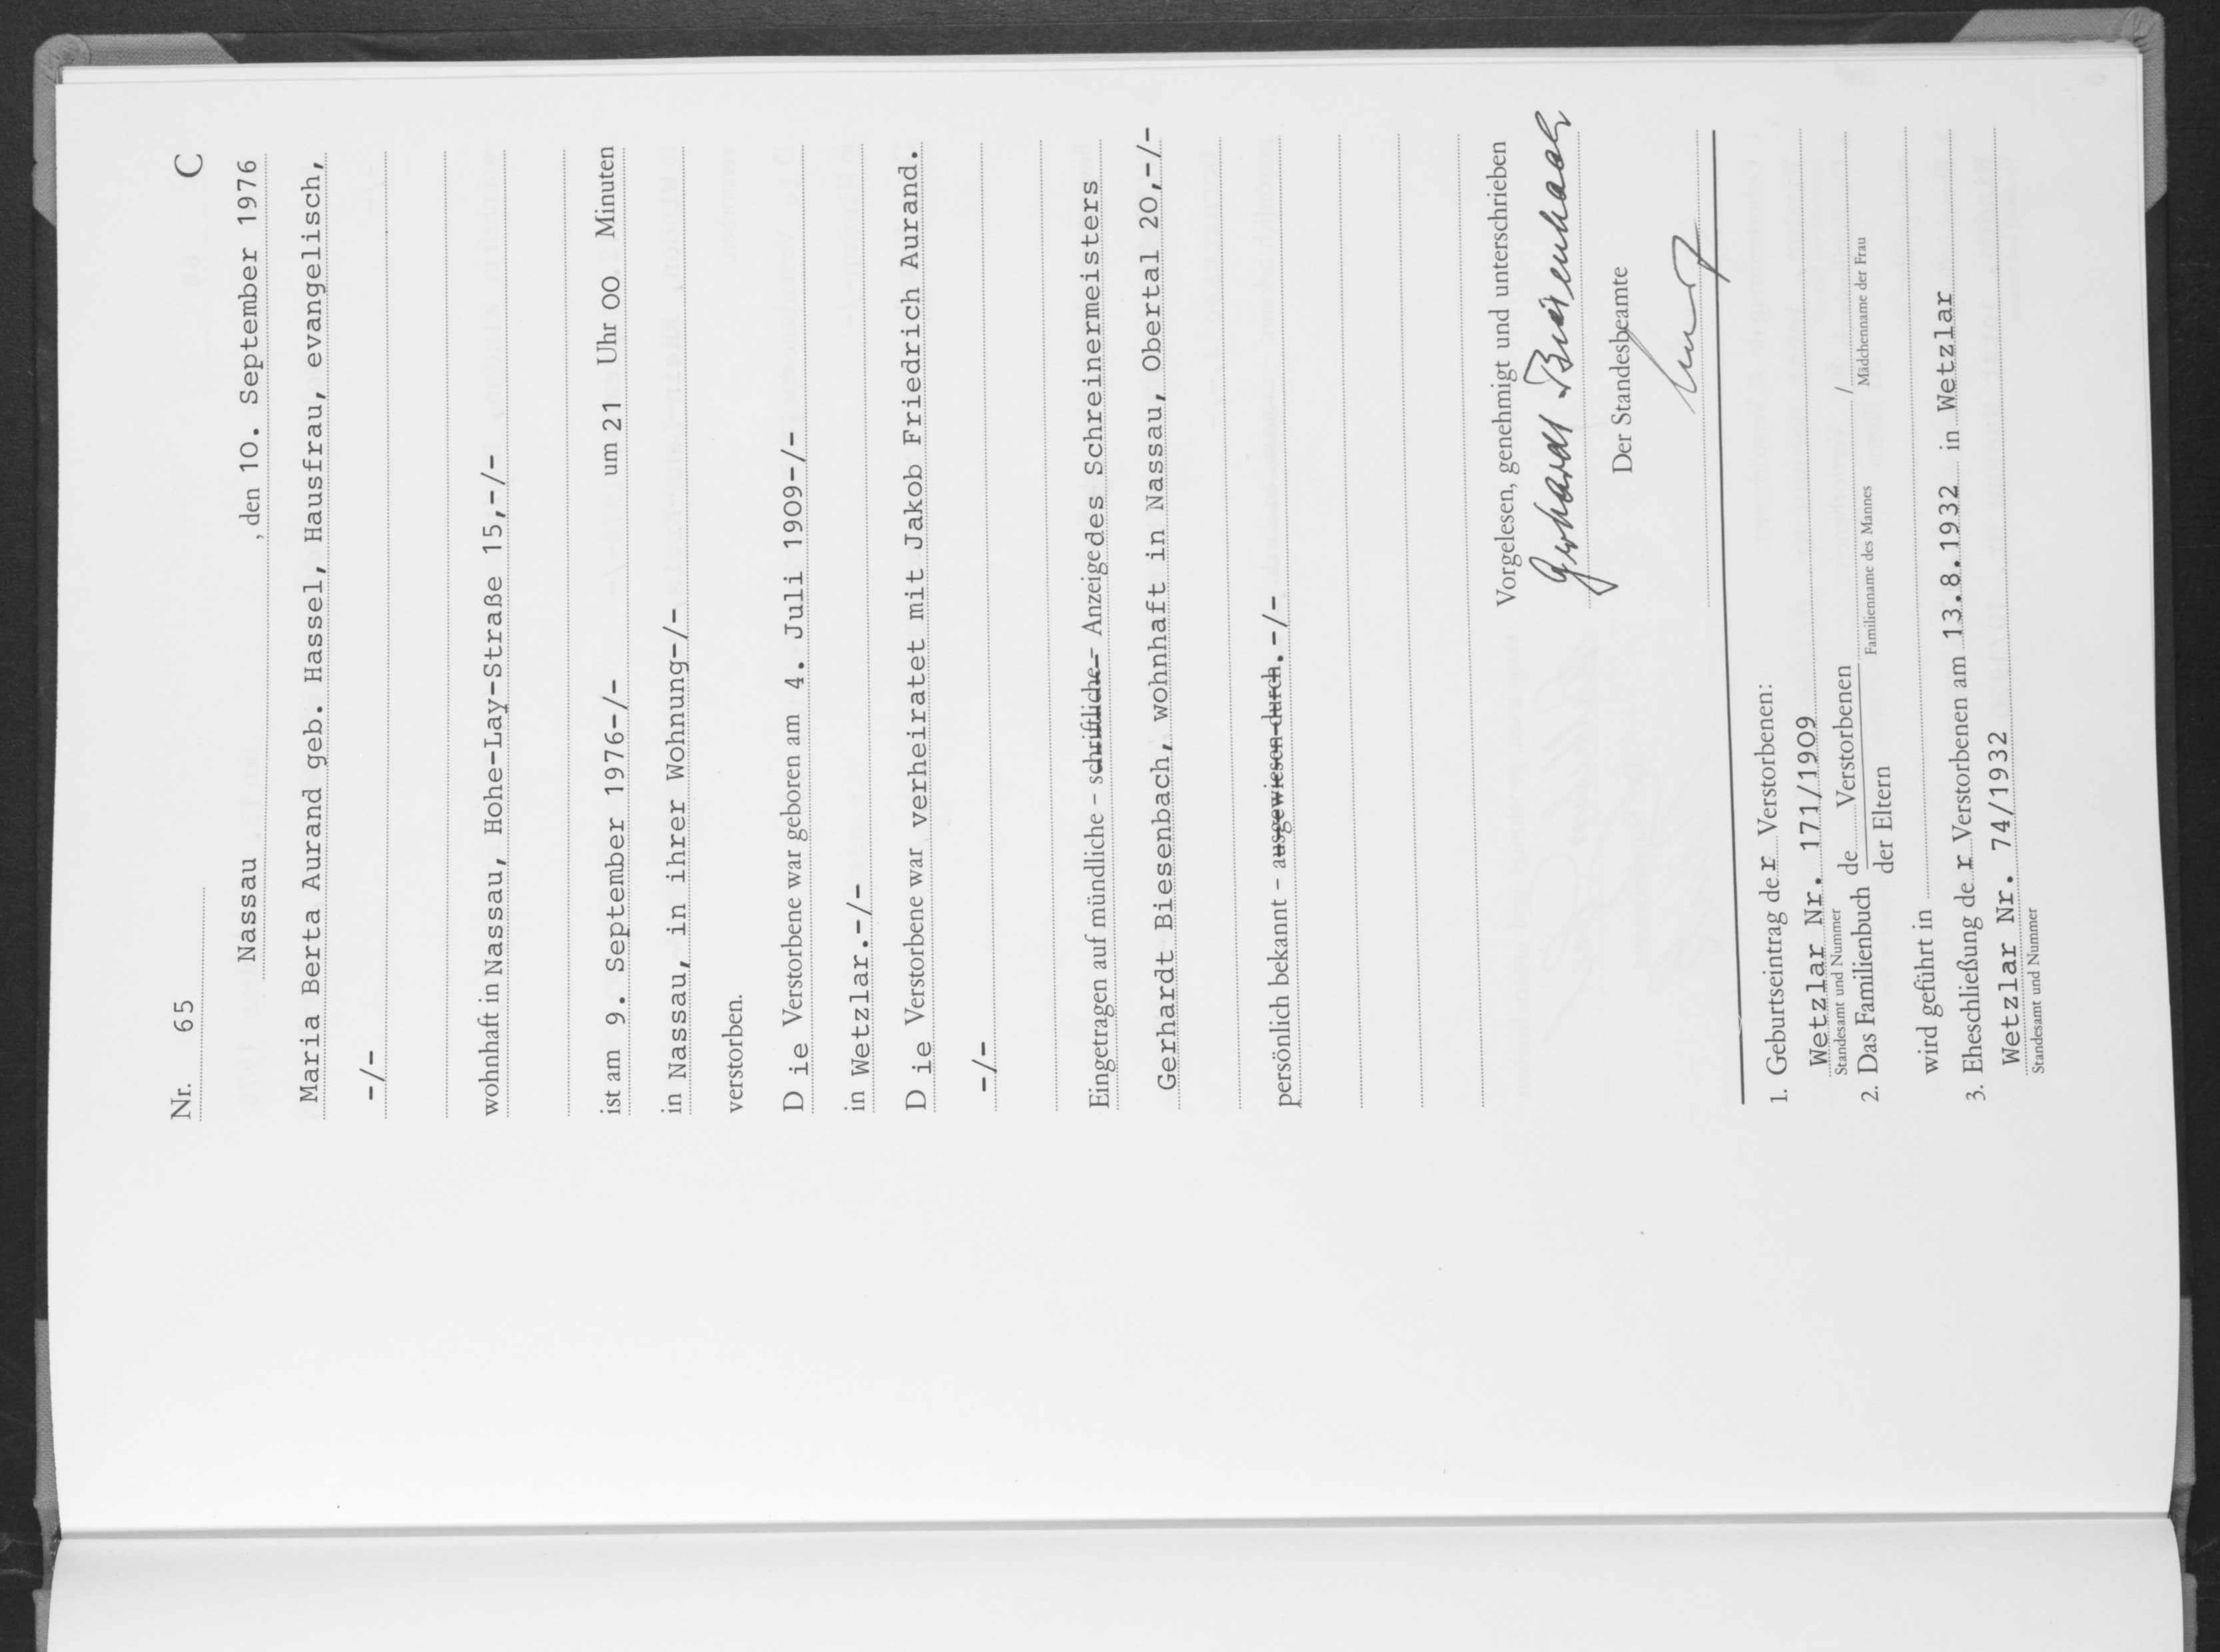 Nr. 65 C
Nassau , den 10. September 1976
Maria Berta Aurand geb. Hassel, Hausfrau, evangelisch,
-/-
wohnhaft in Nassau, Hohe-Lay-Straße 15,-/-
ist am 9. September 1976-/- um 21 Uhr 00 Minuten
in Nassau, in ihrer Wohnung-/-
verstorben.
D ie Verstorbene war geboren am 4. Juli 1909-/-
in Wetzlar.-/-
D ie Verstorbene war verheiratet mit Jakob Friedrich Aurand.
-/-
Eingetragen auf mündliche - schriftliche - Anzeige des Schreinermeisters
Gerhardt Biesenbach, wohnhaft in Nassau, Obertal 20,-/-
persönlich bekannt - ausgewiesen durch.-/-
Vorgelesen, genehmigt und unterschrieben
Gerhardt Biesenbach
Der Standesbeamte
1. Geburtseintrag der Verstorbenen:
Wetzlar Nr. 171/1909
Standesamt und Nummer
2. Das Familienbuch de Verstorbenen /
der Eltern Familienname des Mannes Mädchenname der Frau
wird geführt in
3. Eheschließung de r Verstorbenen am 13.8.1932 in Wetzlar
Wetzlar Nr. 74/1932
Standesamt und Nummer